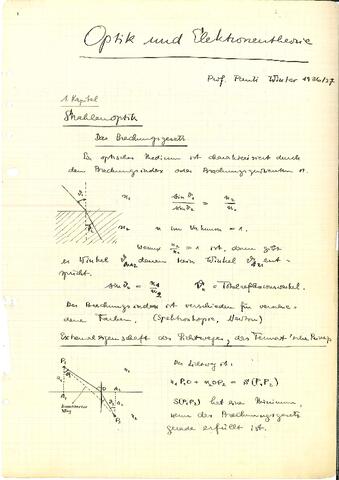 Optik und Elektronentheorie
Prof. Pauli Winter 1936/37
1. Kapitel
Strahlenoptik
Das Brechungsgesetz
Ein optisches Medium ist charakterisiert durch
den Brechungsindex oder Brechungsquotienten n.
n₁ sin ϑ₁ / sin ϑ₂ = n₂ / n₁
n₂ n im Vakuum = 1.
Wenn ist, dann gibt
es Winkel denen kein Winkel ent-
spricht.
= Totalreflexionswinkel.
Der Brechungsindex ist verschieden für verschie-
dene Farben. (Spektroskopie, Newton)
Extremaleigenschaft des Lichtweges, das Fermat'sche Prinzip
P₁
Der Lichtweg ist:
n₁P₁O + n₂OP₂ = S(P₁P₂)
S(P₁P₂) hat ein Minimum,
wenn das Brechungsgesetz
gerade erfüllt ist.
P₂